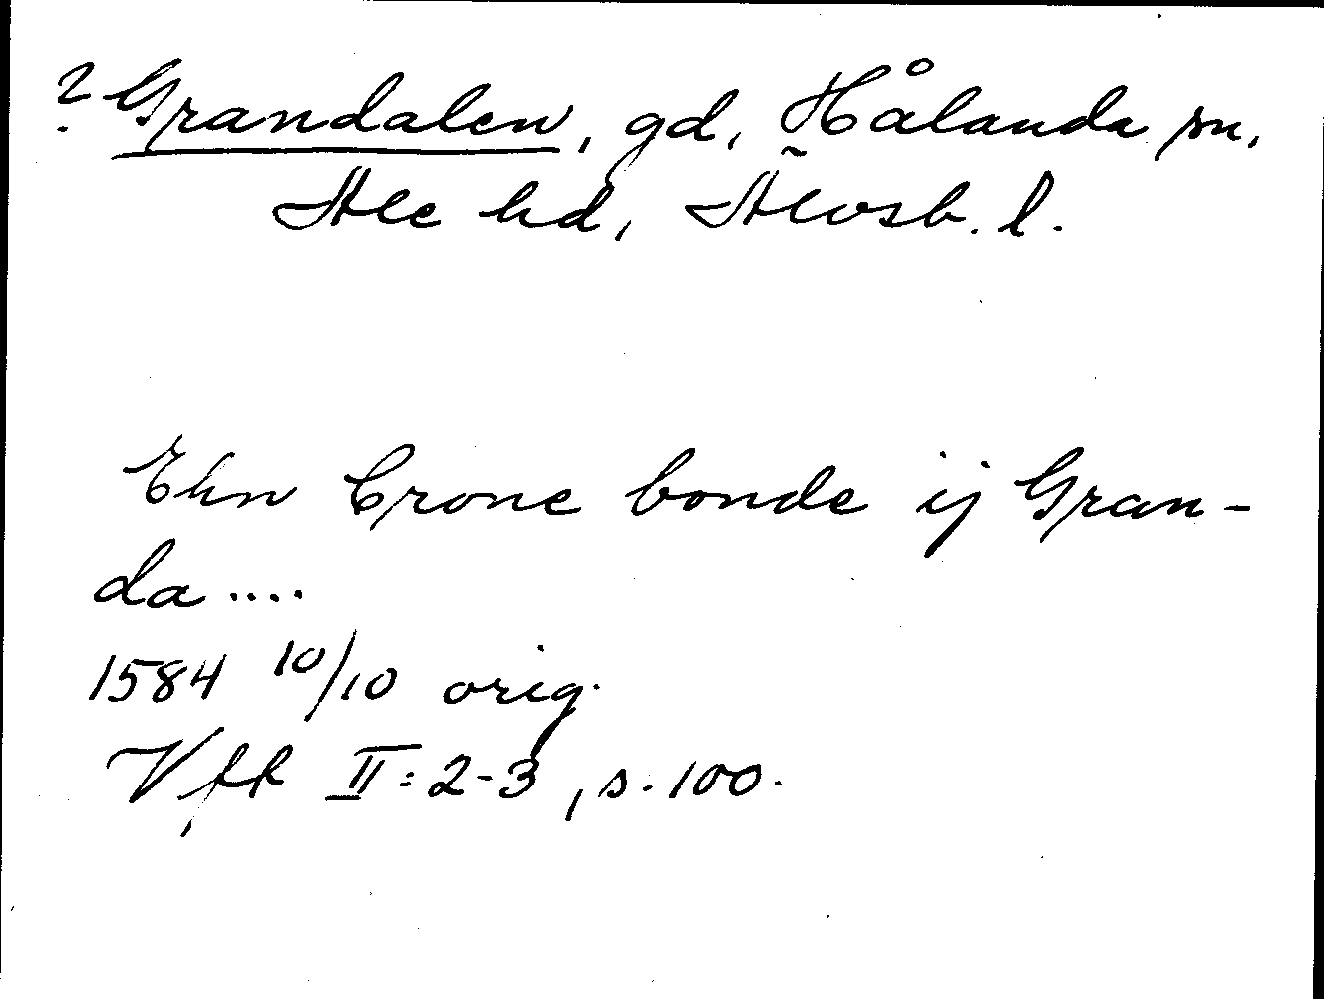 ? Grandalen, gd, Hålanda sn,
Ale hd, Älvsb. l.
Ehn Crone bonde ij Gran-
da ....
1584 10/10 orig.
Vff II:2-3, s. 100.